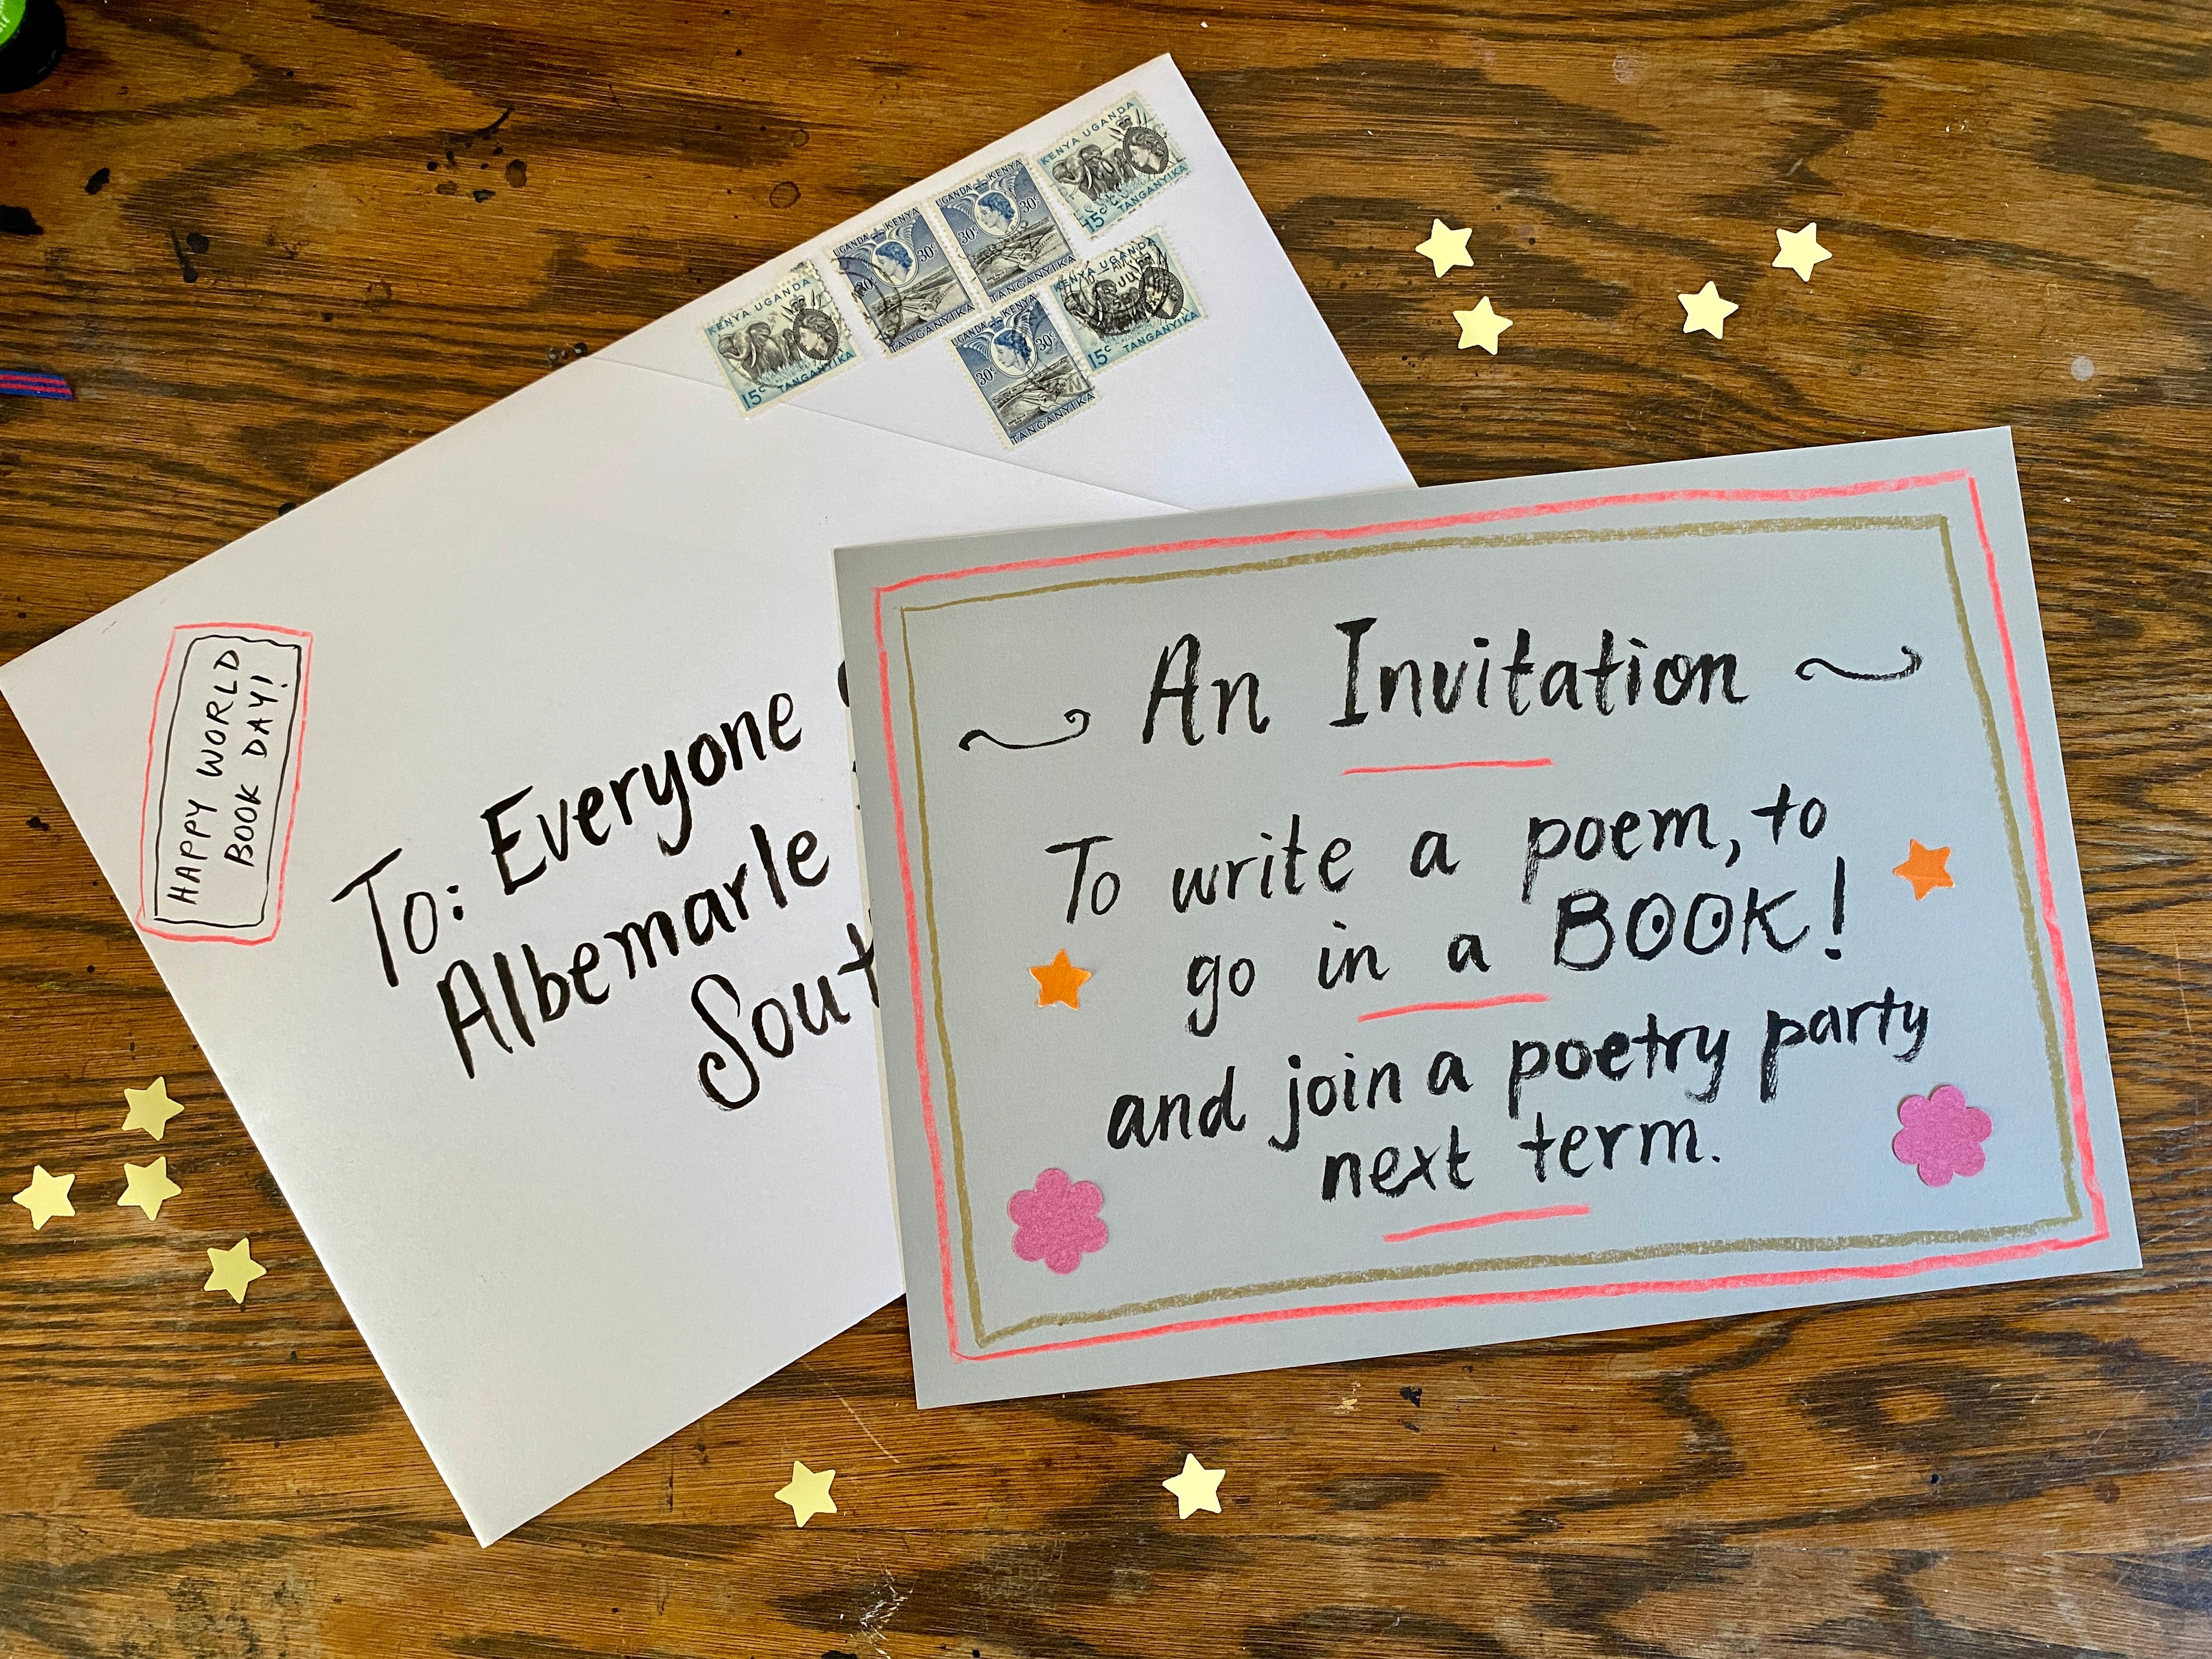 KENYA UGANDA
15c TANGANYIKA
UGANDA KENYA
30c 30c
TANGANYIKA
UGANDA KENYA
30c 30c
TANGANYIKA
KENYA UGANDA
15c TANGANYIKA
UGANDA KENYA
30c 30c
TANGANYIKA
KENYA UGANDA
15c TANGANYIKA
HAPPY WORLD
BOOK DAY!
To: Everyone
Albemarle
Sout
An Invitation
To write a poem, to
go in a BOOK!
and join a poetry party
next term.